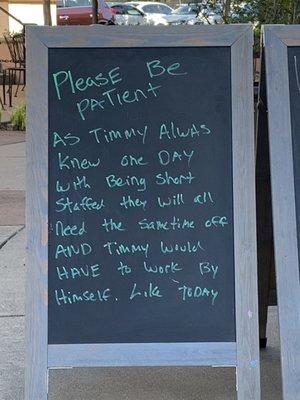 Please Be
Patient
As Timmy Alwas
Knew one Day
with Being Short
Staffed they will all
Need the Sametime off
AND Timmy Would
HAVE to Work By
Himself. Like TODAY